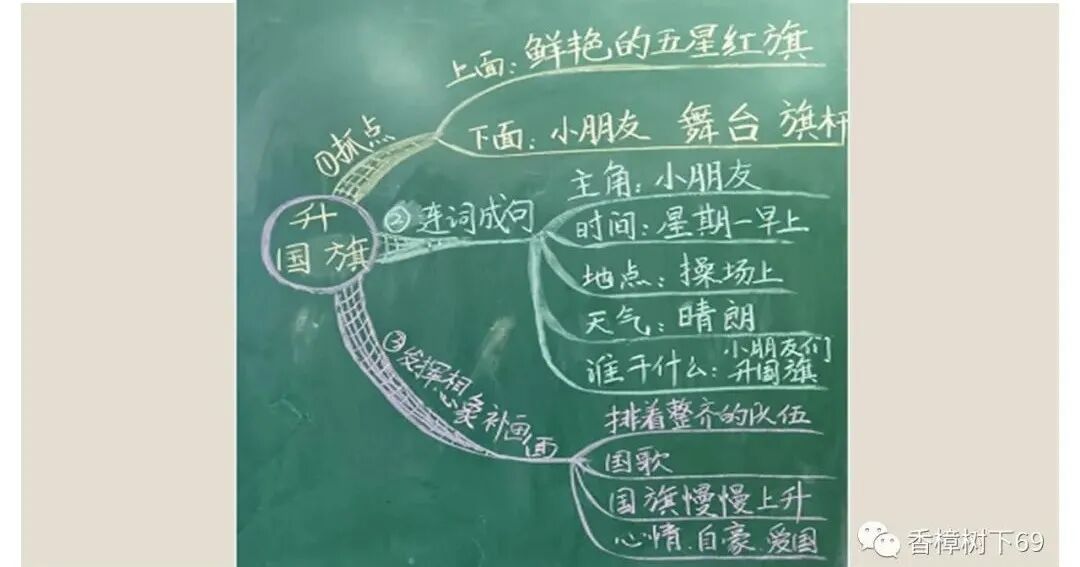 升
国旗
①抓点
上面：鲜艳的五星红旗
下面：小朋友 舞台 旗杆
②连词成句
主角：小朋友
时间：星期一早上
地点：操场上
天气：晴朗
谁干什么：小朋友们
升国旗
③发挥想象补画面
排着整齐的队伍
国歌
国旗慢慢上升
心情.自豪.爱国
香樟树下69